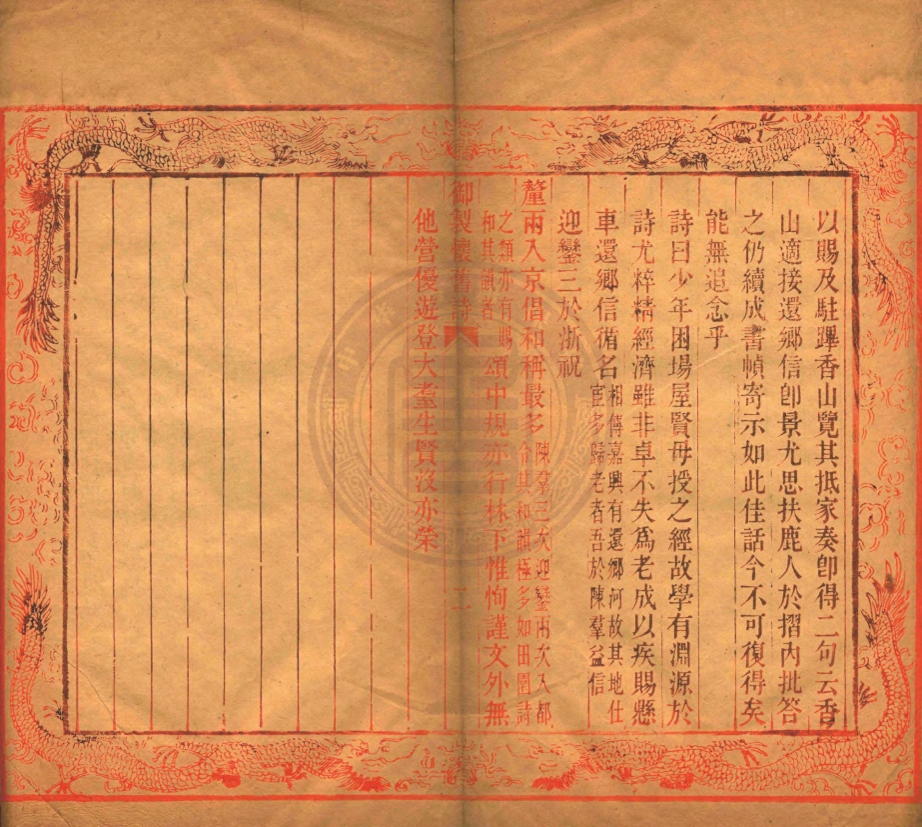 以賜及駐蹕香山覽其抵家奏卽得二句云香
山適接還鄉信卽景尤思扶鹿人於摺內批答
之仍續成書幀寄示如此佳話今不可復得矣
能無追念乎
詩曰少年困場屋賢母授之經故學有淵源於
詩尤粹精經濟雖非卓不失為老成以疾賜懸
車還鄉信循名相傳嘉興有還鄉河故其地仕
宦多歸老者吾於陳羣益信
迎鑾三於浙祝
釐兩入京倡和稱最多陳羣三次迎鑾兩次入都
令其和韻極多如田園詩
之類亦有賜
和其韻者頌中規亦行林下惟恂謹文外無
御製懷舊詩 二
他營優遊登大耋生賢沒亦榮